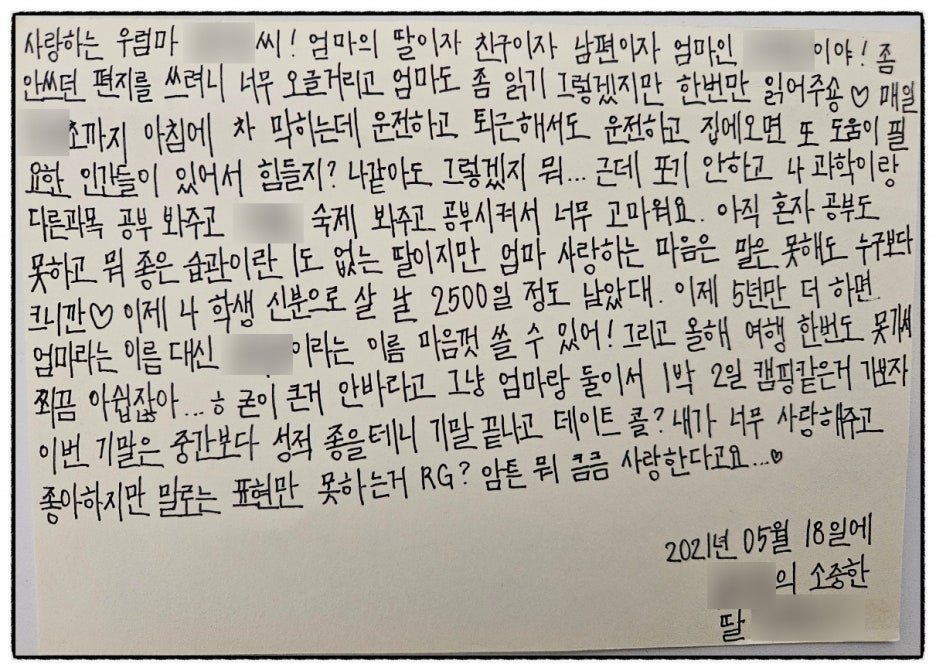 사랑하는 우럼마 씨! 엄마의 딸이자 친구이자 남편이자 엄마인 이야! 좀
안쓰던 편지를 쓰려니 너무 오글거리고 엄마도 좀 읽기 그렇겠지만 한번만 읽어주숑 ♡ 매일
초까지 아침에 차 막히는데 운전하고 퇴근해서도 운전하고 집에오면 또 도움이 필
요한 인간들이 있어서 힘들지? 나같아도 그렇겠지 뭐... 근데 포기 안하고 나 과학이랑
다른과목 공부 봐주고 숙제 봐주고 공부시켜서 너무 고마워요. 아직 혼자 공부도
못하고 뭐 좋은 습관이란 1도 없는 딸이지만 엄마 사랑하는 마음은 말은 못해도 누구보다
크니깐♡ 이제 나 학생 신분으로 살 날 2500일 정도 남았대. 이제 5년만 더 하면
엄마라는 이름 대신 이라는 이름 마음껏 쓸 수 있어! 그리고 올해 여행 한번도 못가서
쬐끔 아쉽잖아...ㅎ 굳이 큰거 안바라고 그냥 엄마랑 둘이서 1박 2일 캠핑같은거 가보자
이번 기말은 중간보다 성적 좋을테니 기말 끝나고 데이트 콜? 내가 너무 사랑해주고
좋아하지만 말로는 표현만 못하는거 RG? 암튼 뭐 큼큼 사랑한다고요...♡
2021년 05월 18일에
의 소중한
딸